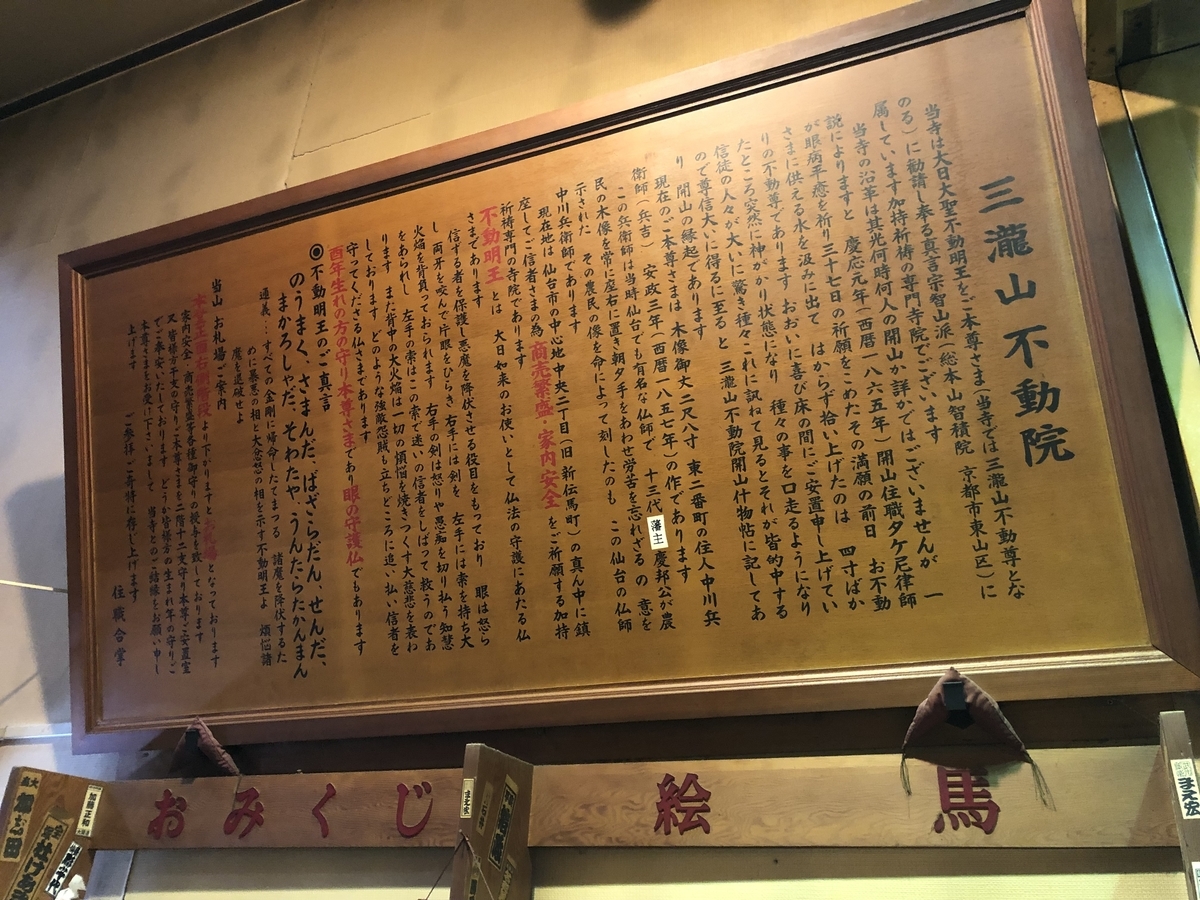 三瀧山不動院
当寺は大日大聖不動明王をご本尊さま(当寺では三瀧山不動尊とな
のる)に勧請し奉る真言宗智山派(総本山智積院 京都市東山区)に
属しています加持祈祷の専門寺院でございます
当寺の沿革は其光何時何人の開山か詳かではございませんが 一
説によりますと 慶応元年(西暦一八六五年)開山住職タケ尼律師
が眼病平癒を祈り三十七日の祈願をこめたその満願の前日 お不動
さまに供える水を汲みに出て はからず拾い上げたのは 四寸ばか
りの不動尊であります おおいに喜び床の間にご安置申し上げてい
たところ突然に神がかり状態になり 種々の事を口走るようになり
信徒の人々が大いに驚き種々これに訊ねて見るとそれが皆的中する
ので尊信大いに得るに至ると 三瀧山不動院開山什物帖に記してあ
り 開山の縁起であります
現在のご本尊さまは 木像御丈二尺八寸 東二番町の住人中川兵
衛師(兵吉) 安政三年(西暦一八五七年)の作であります
この兵衛師は当時仙台でも有名な仏師で 十三代藩主慶邦公が農
民の木像を常に座右に置き朝夕手をあわせ労苦を忘れざるの意を
示された その農民の像を命によって刻したのも この仙台の仏師
中川兵衛師であります
現在地は仙台市の中心地中央二丁目(旧新伝馬町)の真ん中に鎮
座してご信者さまの為 商売繁盛・家内安全 をご祈願する加持
祈祷専門の寺院であります
不動明王 とは 大日如来のお使いとして仏法の守護にあたる仏
さまであります
信ずる者を保護し悪魔を降伏させる役目をもっており 眼は怒ら
し 両牙を咬んで片眼をひらき 右手には剣を 左手には索を持ち大
火焔を背負っておられます 右手の剣は怒りや愚痴を切り払う知慧
をあらわし 左手の索はこの索で迷いの信者をしばって救うのであ
ります また背中の大火焔は一切の煩悩を焼きつくす大慈悲を表わ
しております どのような強敵怨賊も立ちどころに追い払い信者を
守ってくださる仏さまであります
酉年生れの方の守り本尊さまであり眼の守護仏でもあります
◉不動明王のご真言
のうまく、さまんだ、ばざらだん、せんだ、
まかろしゃだ、そわたや、うんたらたかんまん
通義…すべての金剛に帰命したてまつる 諸魔を降伏するた
めに暴悪の相と大忿怒の相を示す不動明王よ 煩悩諸
魔を追破せよ
当山 お札場ご案内
本堂正面右側階段より下がりますとお札場となっております
家内安全 商売繁盛等各種御守りの授与を致しております
又 皆様方干支の守りご本尊さまを二階十二支守り本尊ご安置室
でご奉安いたしております どうか皆様方の生まれ年の守りご
本尊さまをお受け下さいまして 当寺とのご結縁をお願い申し
上げます ご参拝ご寄特に存じ上げます
住職合掌
おみくじ
絵馬
加藤正和